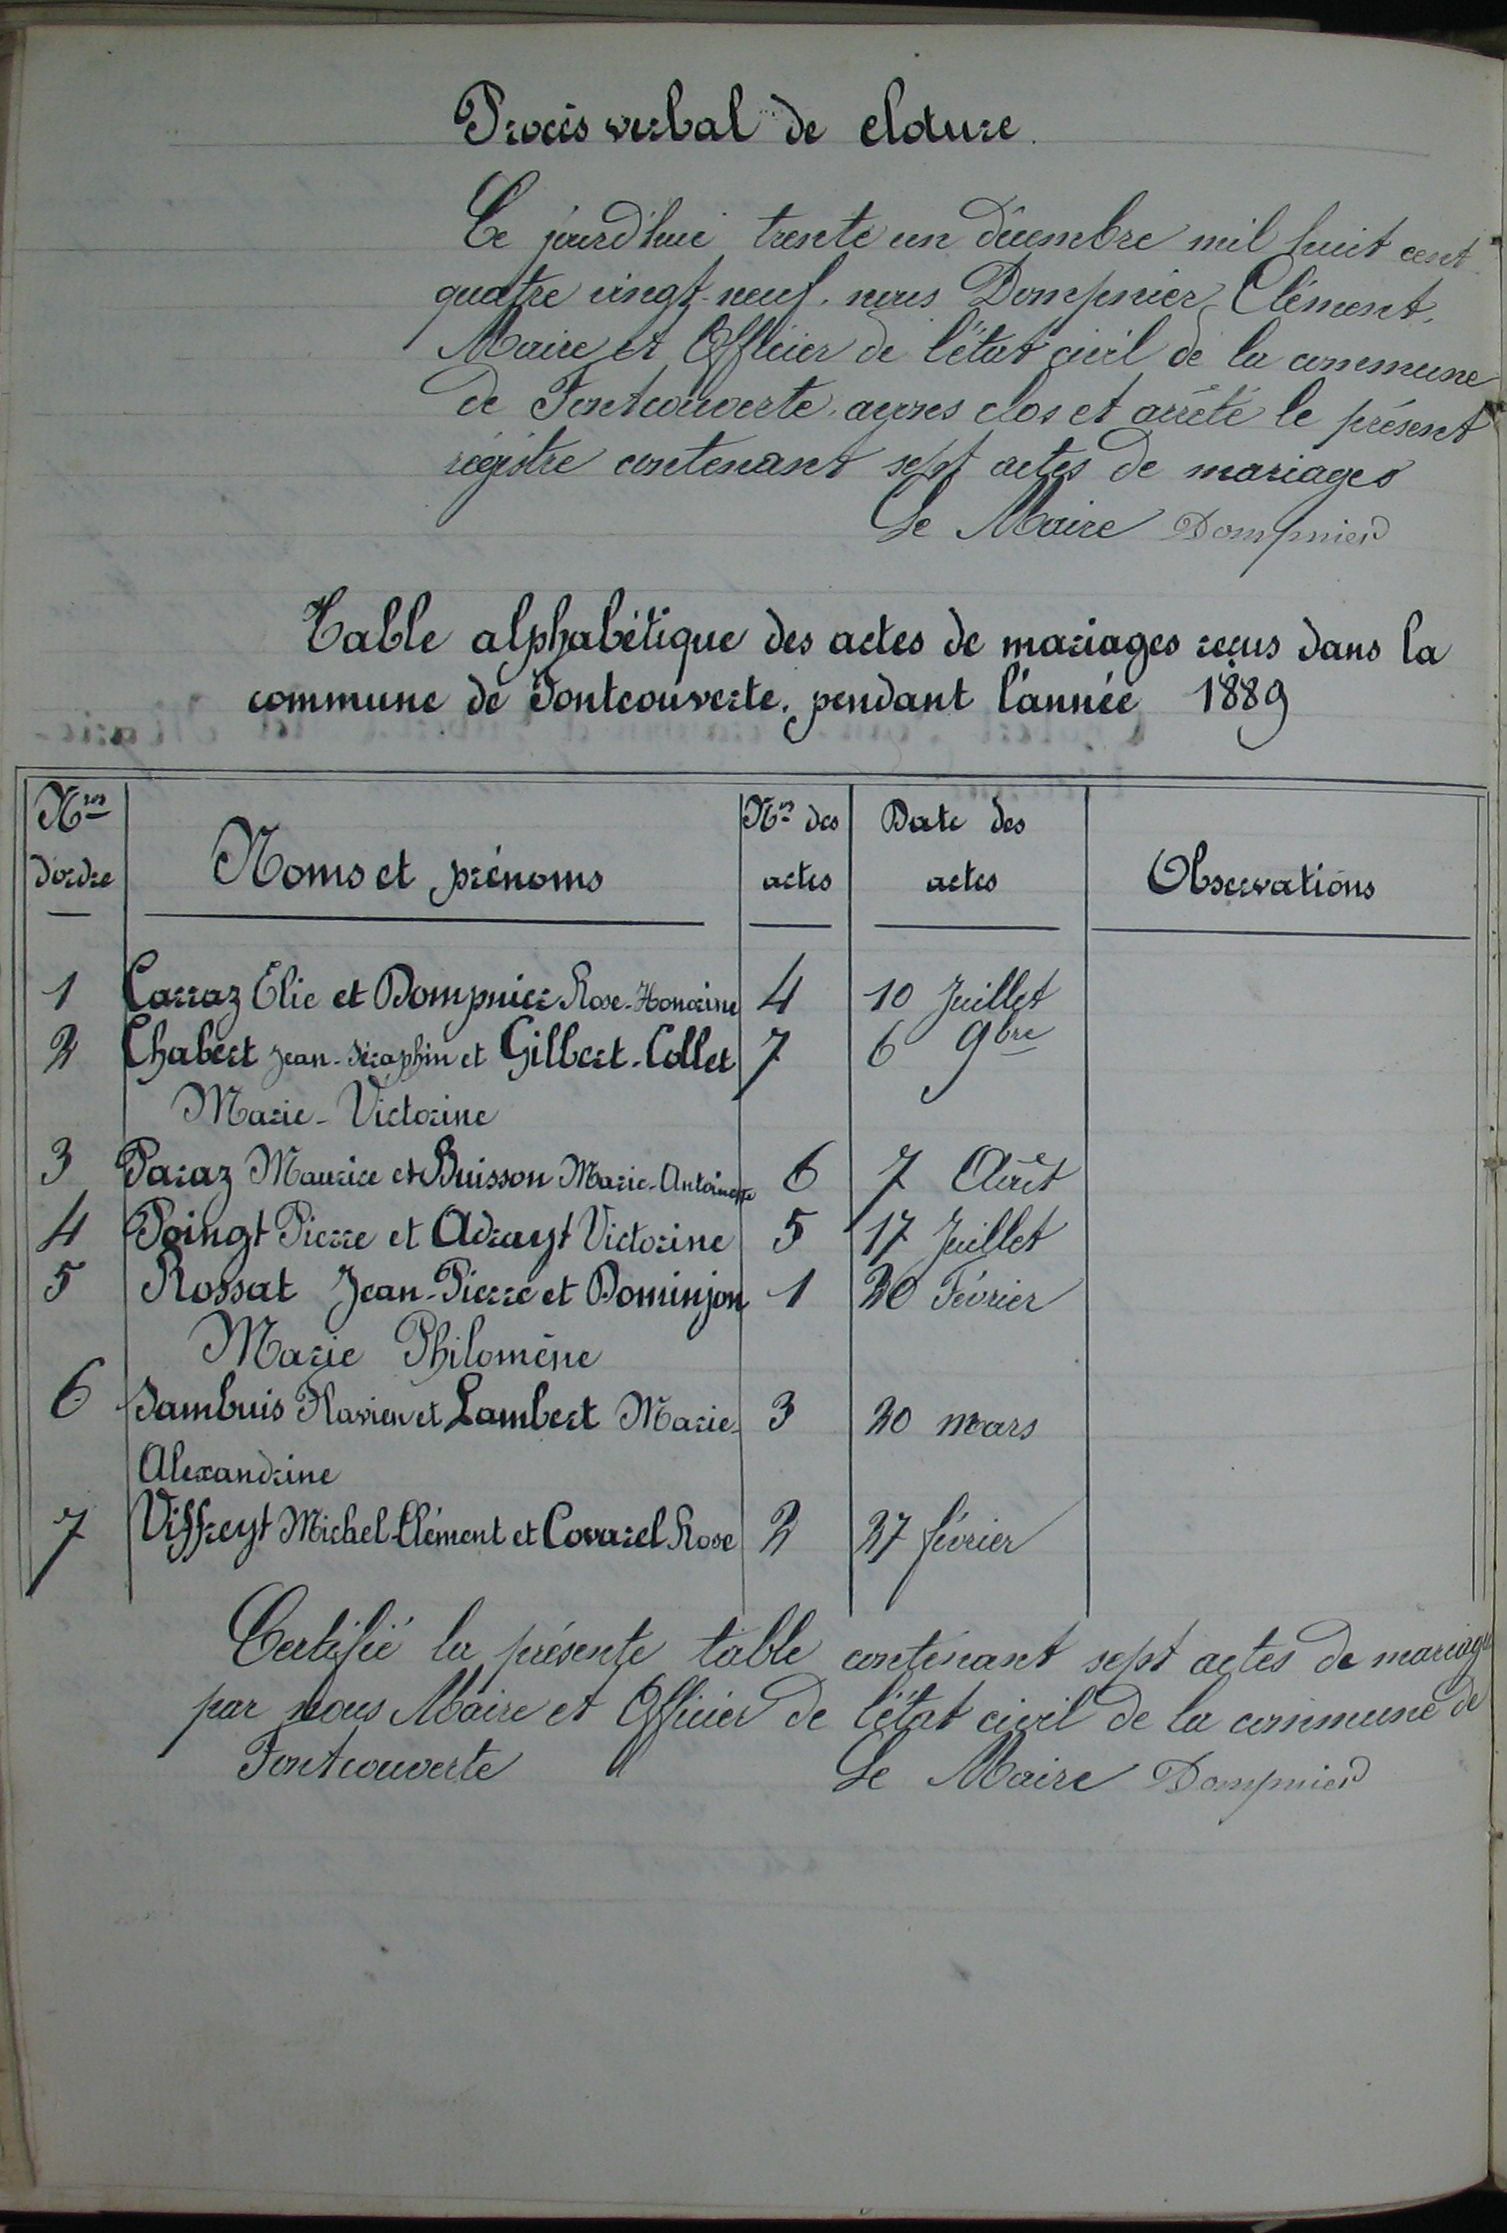 Procès verbal de cloture.
Ce jourd'hui trente un décembre mil huit cent
quatre vingt-neuf. nous Dompnier Clément,
Maire et Officier de l'état civil de la commune
de Fontcouverte. avons clos et arrêté le présent
régistre contenant sept actes de mariages
Le Maire Dompnier
Table alphabétique des actes de mariages reçus dans la
commune de Fontcouverte. pendant l'année 1889
Nos d'ordre Noms et prénoms Nos des actes Date des actes Observations
1 Carraz Elie et Dompnier Rose-Honorine 4 10 Juillet
2 Chabert Jean-Séraphin et Gilbert-Collet 7 6 9bre
Marie-Victorine
3 Paraz Maurice et Buisson Marie-Antoinette 6 7 Août
4 Poingt Pierre et Adrayt Victorine 5 17 Juillet
5 Rossat Jean-Pierre et Dominjon 1 20 Février
Marie Philomène
6 Sambuis Flavien et Lambert Marie- 3 20 mars
Alexandrine
7 Viffreyt Michel-Clément et Covarel Rose 2 27 février
Certifié la présente table contenant sept actes de mariage
par nous Maire et Officier de l'état civil de la commune de
Fontcouverte Le Maire Dompnier